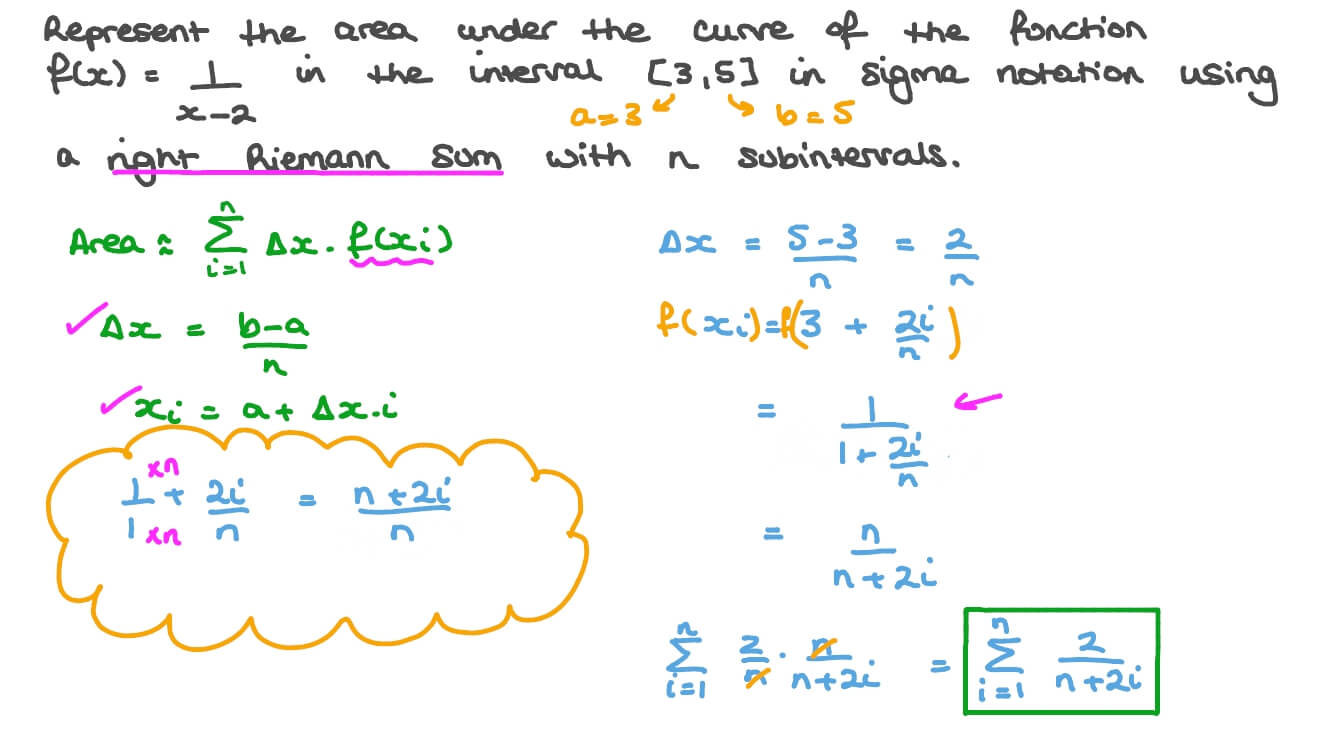 Represent the area under the curve of the function
f(x) = 1/(x-2) in the interval [3,5] in sigma notation using
a=3 b=5
a right Riemann sum with n subintervals.
Area ≈ n Σ i=1 Δx · f(xi)
Δx = (b-a)/n
xi = a + Δx·i
1/1 + 2i/n = (n+2i)/n
xn
xn
Δx = (5-3)/n = 2/n
f(xi) = f(3 + 2i/n)
= 1/(1 + 2i/n)
= n/(n+2i)
n Σ i=1 2/n · n/(n+2i) = n Σ i=1 2/(n+2i)